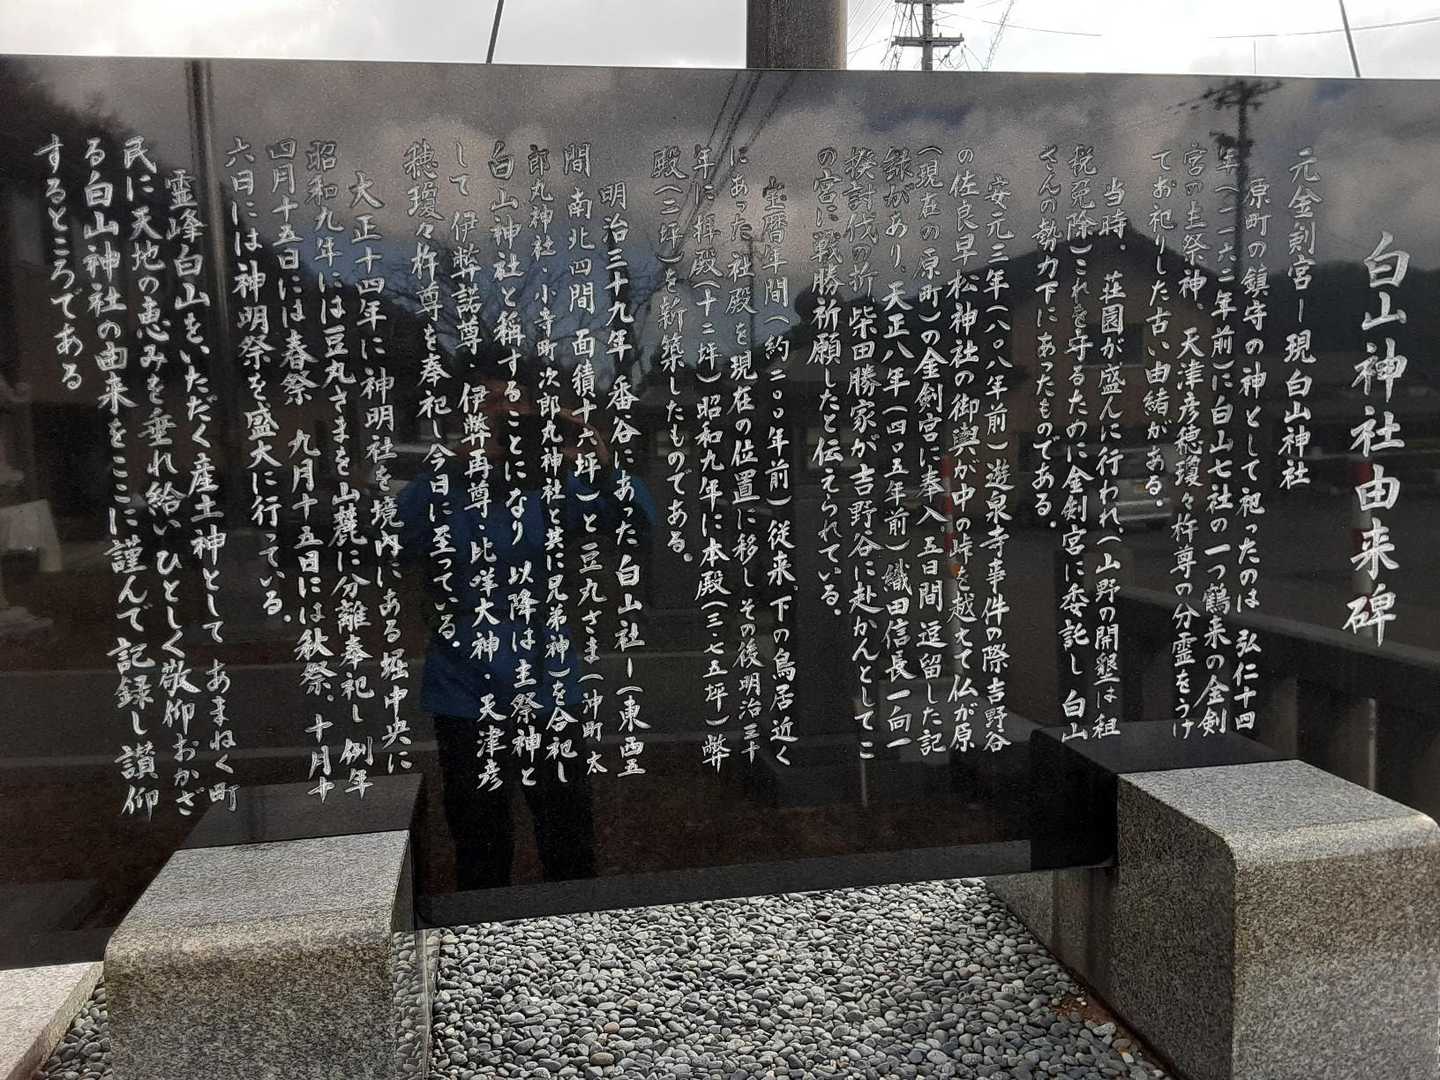 白山神社由来碑
元金剣宮ー現白山神社
原町の鎮守の神として祀ったのは 弘仁十四
年(一一六二年前)に白山七社の一つ鶴来の金剣
宮の主祭神、天津彦穂瓊々杵尊の分霊をうけ
てお祀りした古い由緒がある。
当時、荘園が盛んに行われ(山野の開墾は租
税免除)これを守るために金剣宮に委託し 白山
さんの勢力下にあったものである。
安元三年(八〇八年前)遊泉寺事件の際吉野谷
の佐良早松神社の御輿が中の峠を越えて仏が原
(現在の原町)の金剣宮に奉入 五日間逗留した記
録があり、天正八年(四〇五年前)織田信長一向一
揆討伐の折 柴田勝家が吉野谷に赴かんとしてこ
の宮に戦勝祈願したと伝えられている。
宝暦年間(約二〇〇年前)従来、下の鳥居近く
にあった社殿を現在の位置に移し その後明治三十
年に拝殿(十二坪)昭和九年に本殿(三・七五坪)弊
殿(二坪)を新築したものである。
明治三十九年 番谷にあった白山社ー(東西五
間 南北四間 面積十六坪)と豆丸さま(沖町太
郎丸神社・小寺町次郎丸神社と共に兄弟神)を合祀し
白山神社と称することになり 以降は主祭神と
して 伊弊諾尊、伊弊再尊・比咩大神・天津彦
穂瓊々杵尊を奉祀し今日に至っている。
大正十四年に神明社を境内にある堀中央に
昭和九年には豆丸さまを山麓に分離奉祀し 例年
四月十五日には春祭 九月十五日には秋祭、十月十
六日には神明祭を盛大に行っている。
霊峰白山をいただく産土神として あまねく町
民に天地の恵みを垂れ給い ひとしく敬仰おかざ
る白山神社の由来をここに謹んで記録し 讃仰
するところである